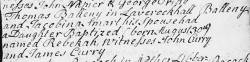 Witnesses John Napier & George
Thomas Balleny in Laverockhall Balleny
and Jacobina Smart his Spouse had
a Daughter Baptized, born August 30th
named Rebekah Witnesses John Curry
and James Curry